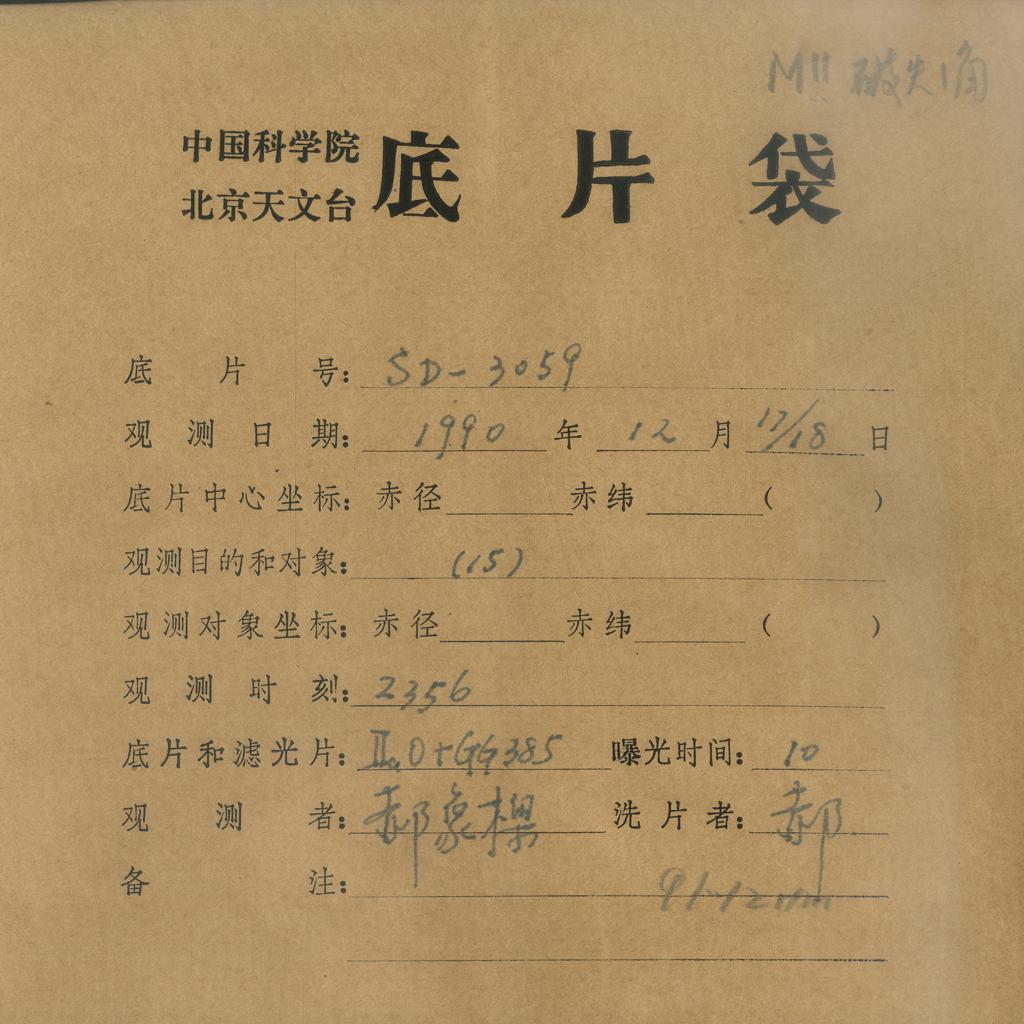 M!! 破失1角
中国科学院
北京天文台
底片袋
底片号: SD-3059
观测日期: 1990年12月17/18日
底片中心坐标: 赤径 赤纬 ( )
观测目的和对象: (15)
观测对象坐标: 赤径 赤纬 ( )
观测时刻: 2356
底片和滤光片: IIaO+GG385 曝光时间: 10
观测者: 郝象樑 洗片者: 郝
备注: